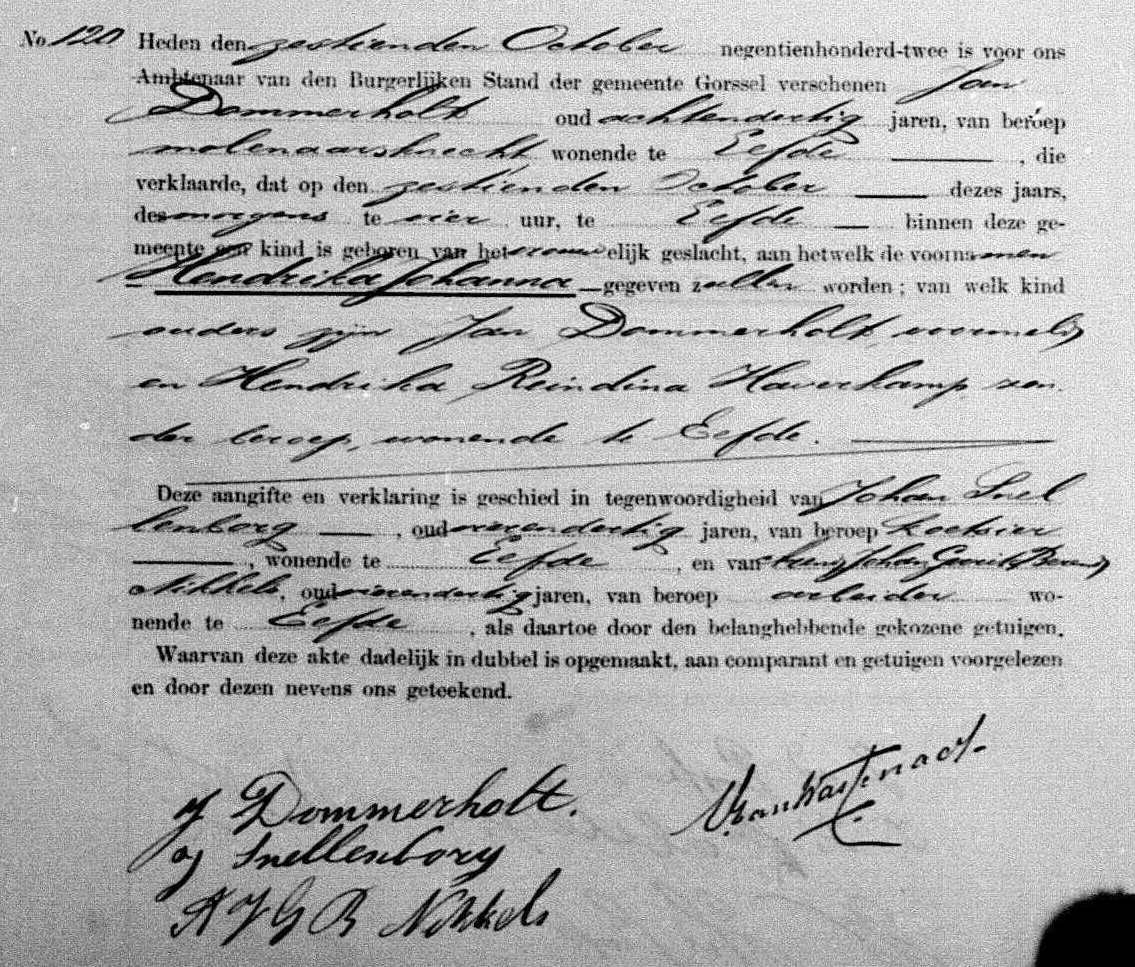 No 120 Heden den zestienden October negentienhonderd-twee is voor ons
Ambtenaar van den Burgerlijken Stand der gemeente Gorssel verschenen Jan
Dommerholt oud achtendertig jaren, van beroep
molenaarsknecht, wonende te Eefde, die
verklaarde, dat op den zestienden October dezes jaars,
des morgens te vier uur, te Eefde binnen deze ge-
meente een kind is geboren van het vrouwelijk geslacht, aan hetwelk de voornamen
Hendrika Johanna gegeven zullen worden; van welk kind
ouders zijn Jan Dommerholt, voormeld,
en Hendrika Reindina Haverkamp, zon-
der beroep, wonende te Eefde.
Deze aangifte en verklaring is geschied in tegenwoordigheid van Johan Snel
lenborg, oud vierendertig jaren, van beroep Koetsier
, wonende te Eefde, en van Johan Gerrit Berend
Nikkels, oud vierendertig jaren, van beroep arbeider wo-
nende te Eefde, als daartoe door den belanghebbende gekozene getuigen.
Waarvan deze akte dadelijk in dubbel is opgemaakt, aan comparant en getuigen voorgelezen
en door dezen nevens ons geteekend.
J Dommerholt.
J Snellenborg
A J G B Nikkels